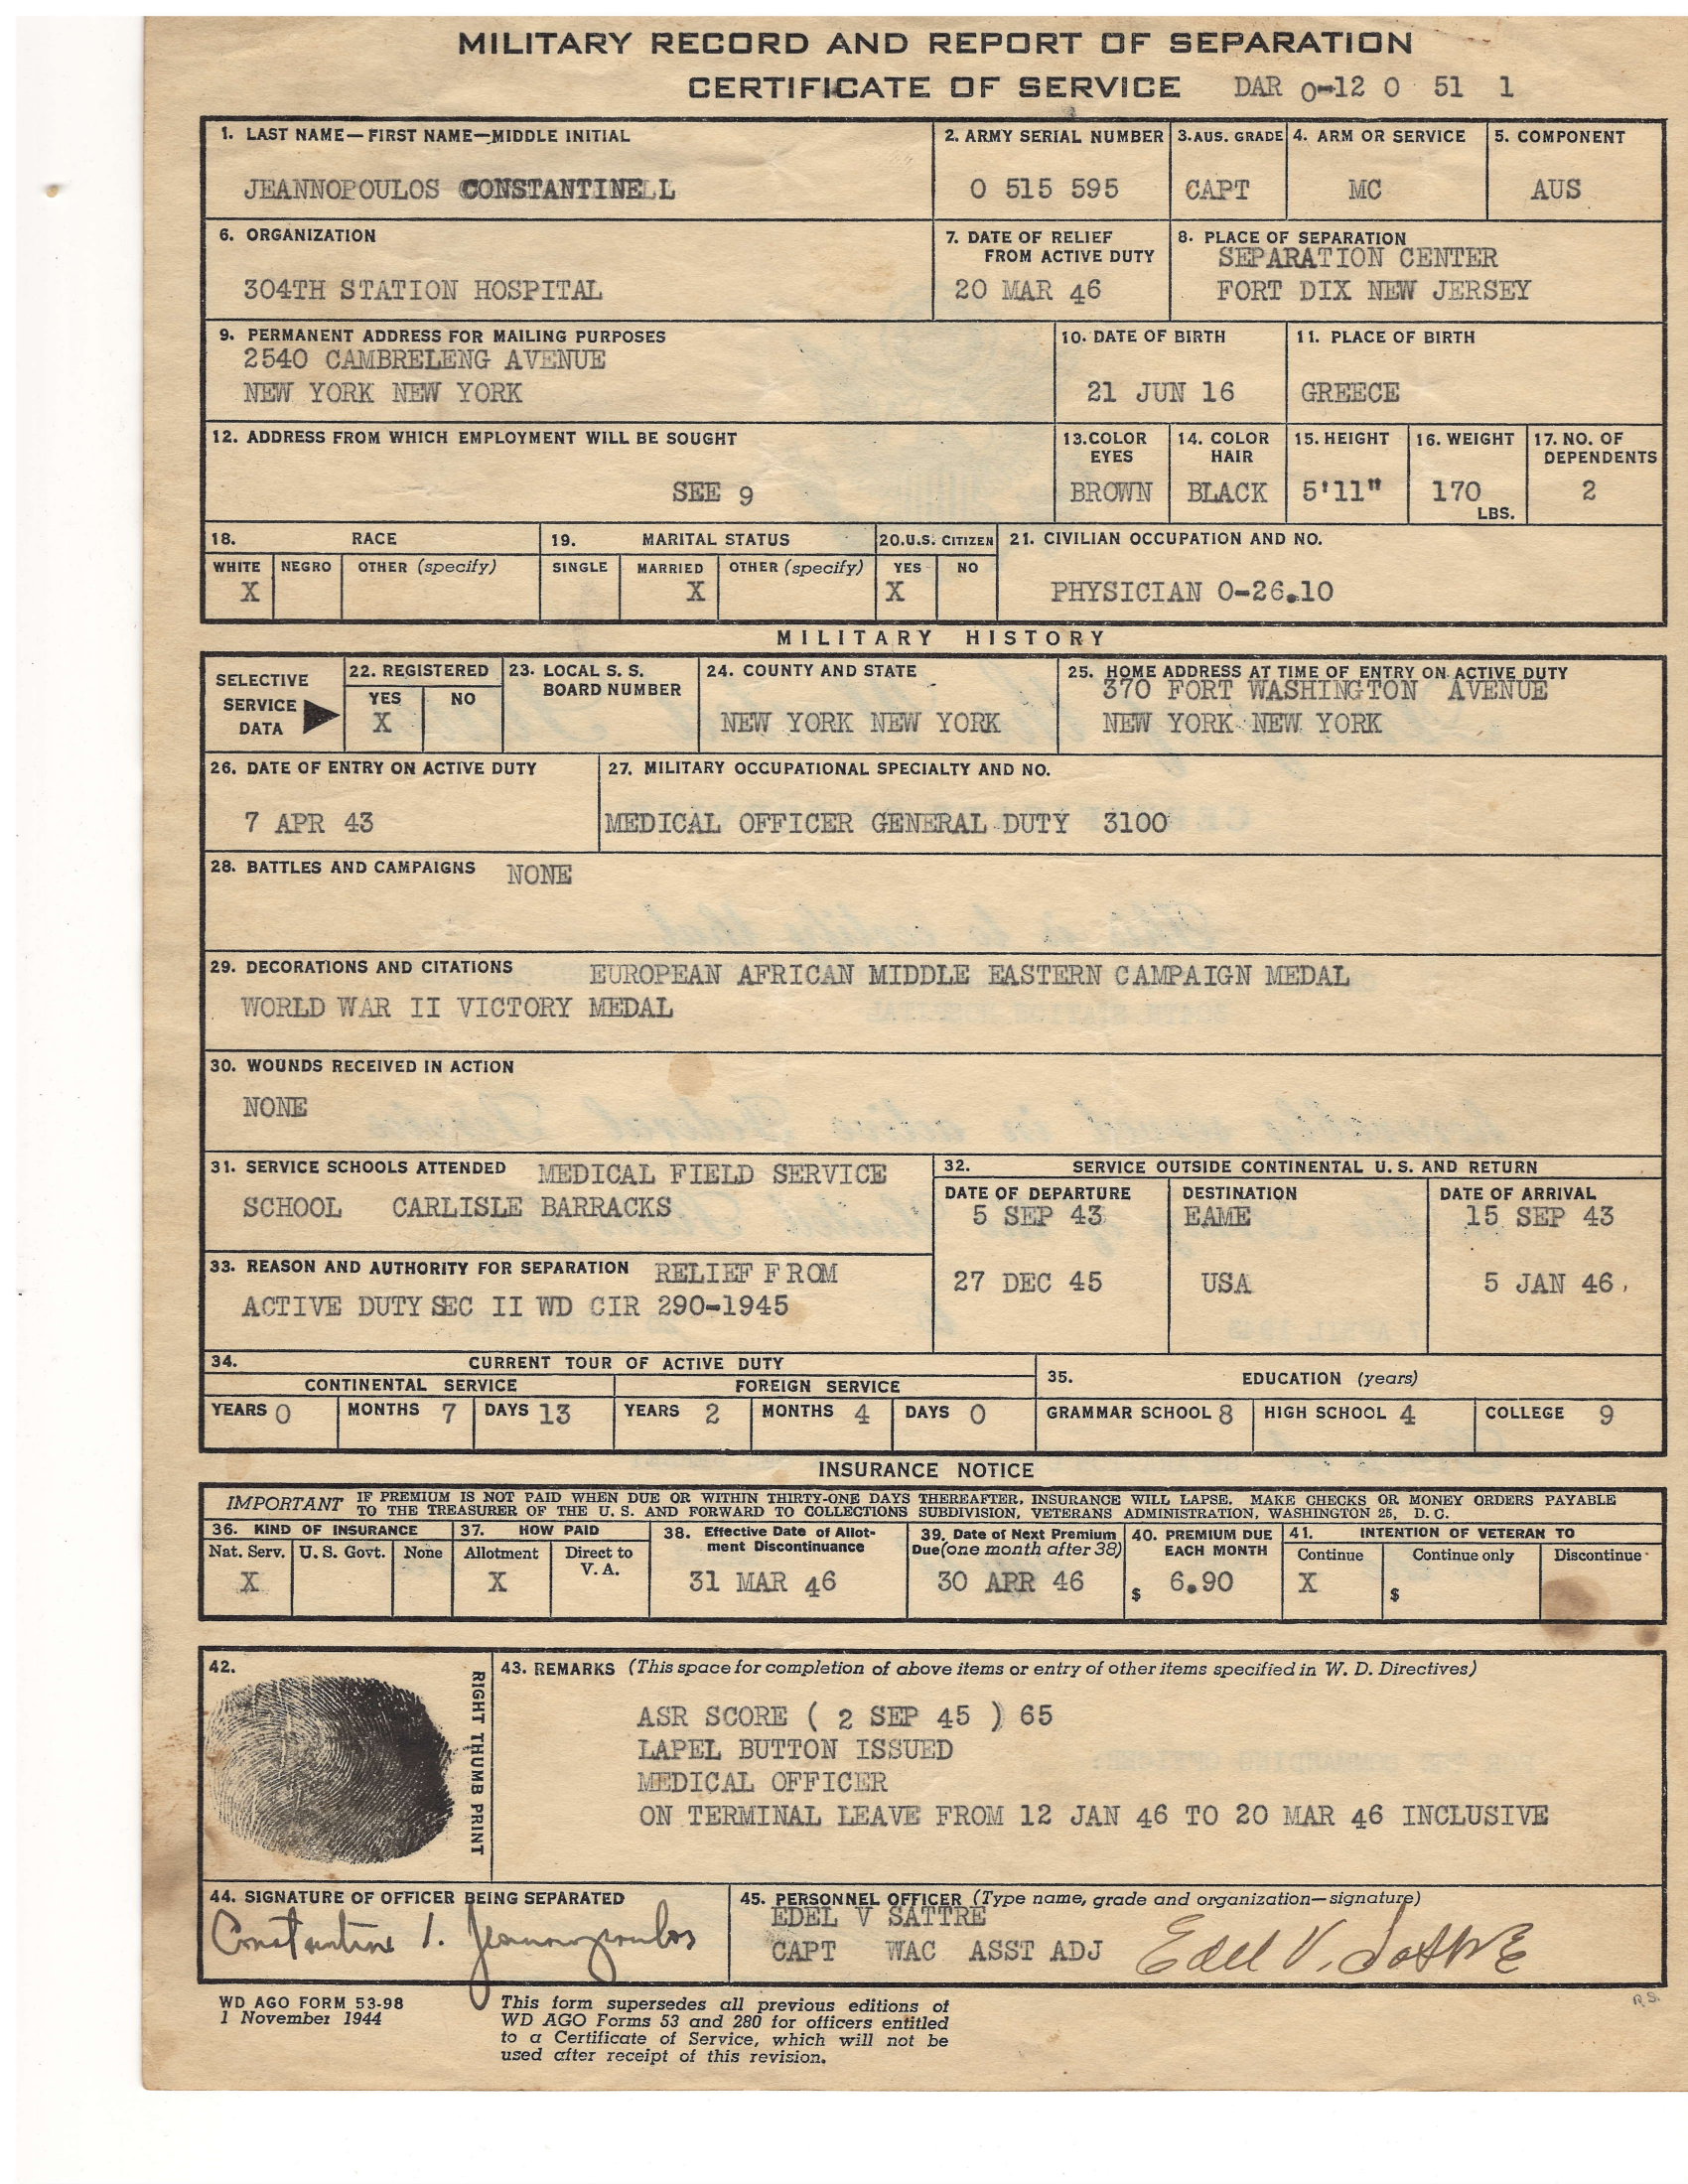 MILITARY RECORD AND REPORT OF SEPARATION
CERTIFICATE OF SERVICE DAR 0-12 0 51 1
1. LAST NAME—FIRST NAME—MIDDLE INITIAL
JEANNOPOULOS CONSTANTINE
2. ARMY SERIAL NUMBER
0 515 595
3. AUS. GRADE
CAPT
4. ARM OR SERVICE
MC
5. COMPONENT
AUS
6. ORGANIZATION
304TH STATION HOSPITAL
7. DATE OF RELIEF
FROM ACTIVE DUTY
20 MAR 46
8. PLACE OF SEPARATION
SEPARATION CENTER
FORT DIX NEW JERSEY
9. PERMANENT ADDRESS FOR MAILING PURPOSES
2540 CAMBRELENG AVENUE
NEW YORK NEW YORK
10. DATE OF BIRTH
21 JUN 16
11. PLACE OF BIRTH
GREECE
12. ADDRESS FROM WHICH EMPLOYMENT WILL BE SOUGHT
SEE 9
13. COLOR
EYES
BROWN
14. COLOR
HAIR
BLACK
15. HEIGHT
5'11"
16. WEIGHT
170
LBS.
17. NO. OF
DEPENDENTS
2
18. RACE
WHITE NEGRO OTHER (specify)
X
19. MARITAL STATUS
SINGLE MARRIED OTHER (specify)
X
20. U.S. CITIZEN
YES NO
X
21. CIVILIAN OCCUPATION AND NO.
PHYSICIAN 0-26.10
MILITARY HISTORY
SELECTIVE
SERVICE
DATA
22. REGISTERED
YES NO
X
23. LOCAL S. S.
BOARD NUMBER
24. COUNTY AND STATE
NEW YORK NEW YORK
25. HOME ADDRESS AT TIME OF ENTRY ON ACTIVE DUTY
370 FORT WASHINGTON AVENUE
NEW YORK NEW YORK
26. DATE OF ENTRY ON ACTIVE DUTY
7 APR 43
27. MILITARY OCCUPATIONAL SPECIALTY AND NO.
MEDICAL OFFICER GENERAL DUTY 3100
28. BATTLES AND CAMPAIGNS NONE
29. DECORATIONS AND CITATIONS EUROPEAN AFRICAN MIDDLE EASTERN CAMPAIGN MEDAL
WORLD WAR II VICTORY MEDAL
30. WOUNDS RECEIVED IN ACTION
NONE
31. SERVICE SCHOOLS ATTENDED MEDICAL FIELD SERVICE
SCHOOL CARLISLE BARRACKS
32. SERVICE OUTSIDE CONTINENTAL U. S. AND RETURN
DATE OF DEPARTURE DESTINATION DATE OF ARRIVAL
5 SEP 43 EAME 15 SEP 43
27 DEC 45 USA 5 JAN 46
33. REASON AND AUTHORITY FOR SEPARATION RELIEF FROM
ACTIVE DUTY SEC II WD CIR 290-1945
34. CURRENT TOUR OF ACTIVE DUTY
CONTINENTAL SERVICE FOREIGN SERVICE
YEARS 0 MONTHS 7 DAYS 13 YEARS 2 MONTHS 4 DAYS 0
35. EDUCATION (years)
GRAMMAR SCHOOL 8 HIGH SCHOOL 4 COLLEGE 9
INSURANCE NOTICE
IMPORTANT IF PREMIUM IS NOT PAID WHEN DUE OR WITHIN THIRTY-ONE DAYS THEREAFTER, INSURANCE WILL LAPSE. MAKE CHECKS OR MONEY ORDERS PAYABLE
TO THE TREASURER OF THE U. S. AND FORWARD TO COLLECTIONS SUBDIVISION, VETERANS ADMINISTRATION, WASHINGTON 25, D. C.
36. KIND OF INSURANCE
Nat. Serv. U. S. Govt. None
X
37. HOW PAID
Allotment Direct to
V. A.
X
38. Effective Date of Allot-
ment Discontinuance
31 MAR 46
39. Date of Next Premium
Due (one month after 38)
30 APR 46
40. PREMIUM DUE
EACH MONTH
$ 6.90
41. INTENTION OF VETERAN TO
Continue Continue only Discontinue
X $
42.
RIGHT THUMB PRINT
43. REMARKS (This space for completion of above items or entry of other items specified in W. D. Directives)
ASR SCORE ( 2 SEP 45 ) 65
LAPEL BUTTON ISSUED
MEDICAL OFFICER
ON TERMINAL LEAVE FROM 12 JAN 46 TO 20 MAR 46 INCLUSIVE
44. SIGNATURE OF OFFICER BEING SEPARATED
Constantine I. Jeannopoulos
45. PERSONNEL OFFICER (Type name, grade and organization—signature)
EDEL V SATTRE
CAPT WAC ASST ADJ
Edel V. Sattre
WD AGO FORM 53-98
1 November 1944
This form supersedes all previous editions of
WD AGO Forms 53 and 280 for officers entitled
to a Certificate of Service, which will not be
used after receipt of this revision.
R.S.